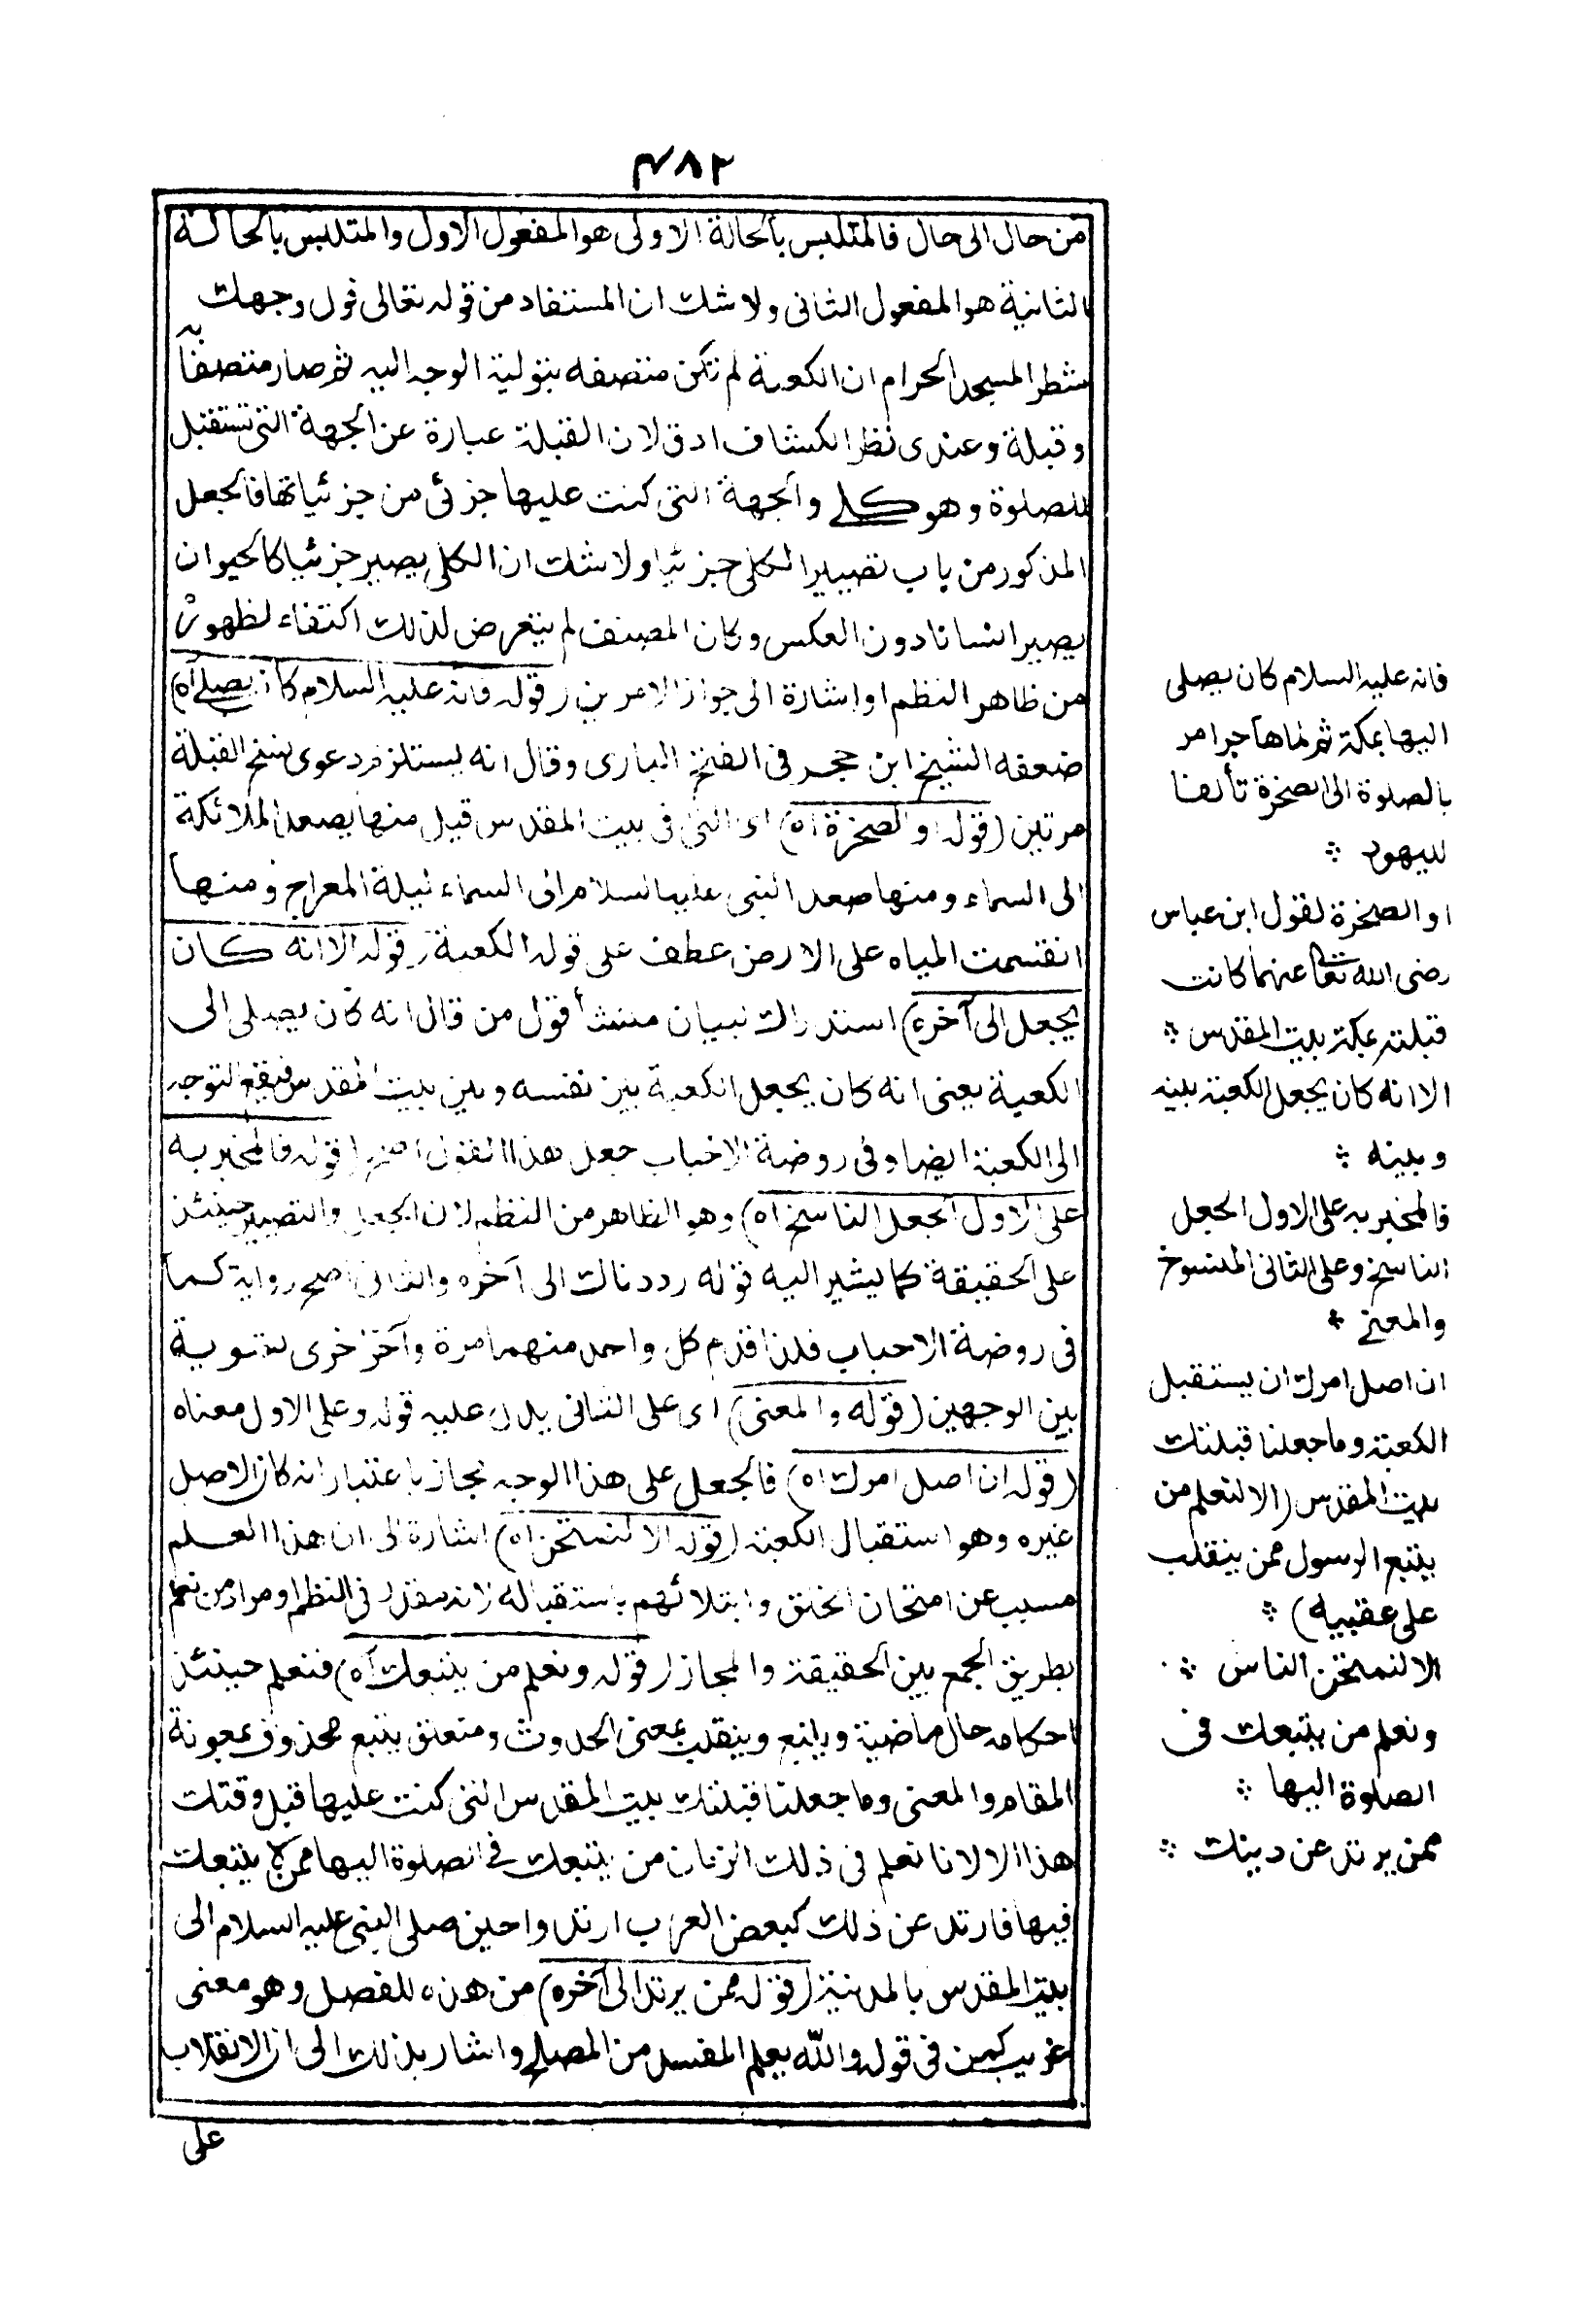 ٤٨٢
من حال الى حال فالمتلبس بالحالة الاولى هو المفعول الاول والمتلبس بالحالة
الثانية هو المفعول الثانى ولا شك ان المستفاد من قوله تعالى فول وجهك
شطر المسجد الحرام ان الكعبة لم تكن متصفه بتولية الوجه اليه ثم صار متصفا به
وقبلة وعندى نظر الكشاف ادق لان القبلة عبارة عن الجهة التى تستقبل
للصلوة وهو كلى والجهة التى كنت عليها جزئى من جزئياتها فالجعل
المذكور من باب تصيير الكلى جزئيا ولا شك ان الكلى يصير جزئيا كالحيوان
يصير انسانا دون العكس وكان المصنف لم يتعرض لذلك اكتفاء لظهوره
من ظاهر النظم او اشارة الى جواز الامرين (قوله فانه عليه السلام كان يصلى اه)
ضعفه الشيخ ابن حجر فى الفتح البارى وقال انه يستلزم دعوى نسخ القبلة
مرتين (قوله او الصخرة اه) اى التى فى بيت المقدس قيل منها يصعد الملائكة
الى السماء ومنها صعد النبى عليه السلام الى السماء ليلة المعراج ومنها
انقسمت المياه على الارض عطف على قوله الكعبة (قوله الا انه كان
يجعل الى آخره) استدراك لبيان منشأ قول من قال انه كان يصلى الى
الكعبة يعنى انه كان يجعل الكعبة بين نفسه وبين بيت المقدس فيقع التوجه
الى الكعبة ايضا وفى روضة الاحباب جعل هذا القول اصح (قوله فالمخبر به
على الاول الجعل الناسخ اه) وهو الظاهر من النظم لان الجعل والتصيير حينئذ
على الحقيقة كما يشير اليه قوله رددناك الى آخره والثانى اصح رواية كما
فى روضة الاحباب فلذا قدم كل واحد منهما مرة وآخر اخرى تسوية
بين الوجهين (قوله والمعنى) اى على الثانى يدل عليه قوله وعلى الاول معناه
(قوله ان اصل امرك اه) فالجعل على هذا الوجه مجاز باعتبار انه كان الاصل
غيره وهو استقبال الكعبة (قوله الا لنمتحن اه) اشارة الى ان هذا العلم
مسبب عن امتحان الخلق وابتلائهم باستقباله لانه مقدر فى النظم او مراد من نعلم
بطريق الجمع بين الحقيقة والمجاز (قوله ونعلم من يتبعك اه) فنعلم حينئذ
حكاية حال ماضية ويتبع وينقلب بمعنى الحدوث ومتعلق يتبع محذوف بمعونة
المقام والمعنى وما جعلنا قبلتك بيت المقدس التى كنت عليها قبل وقتك
هذا الا لانا نعلم فى ذلك الزمان من يتبعك فى الصلوة اليها ممن لا يتبعك
فيها فارتد عن ذلك كبعض العرب ارتدوا حين صلى النبى عليه السلام الى
بيت المقدس بالمدينة (قوله ممن يرتد الى آخره) من هذه للفصل وهو معنى
غريب كمن فى قوله والله يعلم المفسد من المصلح واشار بذلك الى ان الانقلاب
على
فانه عليه السلام كان يصلى
اليها بمكة ثم لما هاجر امر
بالصلوة الى الصخرة تألفا
لليهود
او الصخرة لقول ابن عباس
رضى الله تعا عنهما كانت
قبلته بمكة بيت المقدس
الا انه كان يجعل الكعبة بينه
وبينه
فالمخبر به على الاول الجعل
الناسخ وعلى الثانى المنسوخ
والمعنى
ان اصل امرك ان يستقبل
الكعبة وما جعلنا قبلتك
بيت المقدس (الا لنعلم من
يتبع الرسول ممن ينقلب
على عقبيه)
الا لنمتحن الناس
ونعلم من يتبعك فى
الصلوة اليها
ممن يرتد عن دينك